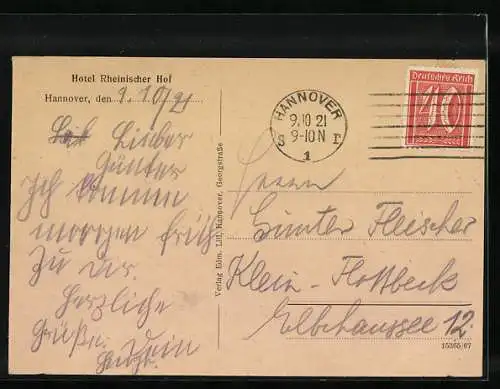 Hotel Rheinischer Hof
Hannover, den 9.10/21
Lieber
Günter
Ich komme
morgen früh
zu dir.
Herzliche
Grüße. Dein
Verlag Edm. Lill, Hannover, Georgstraße
HANNOVER
9.10 21
9-10 N
S 1 r
Deutsches Reich
40
Herrn
Günter Fleischer
Klein-Flottbeck
Elbchaussee 12.
15365/67